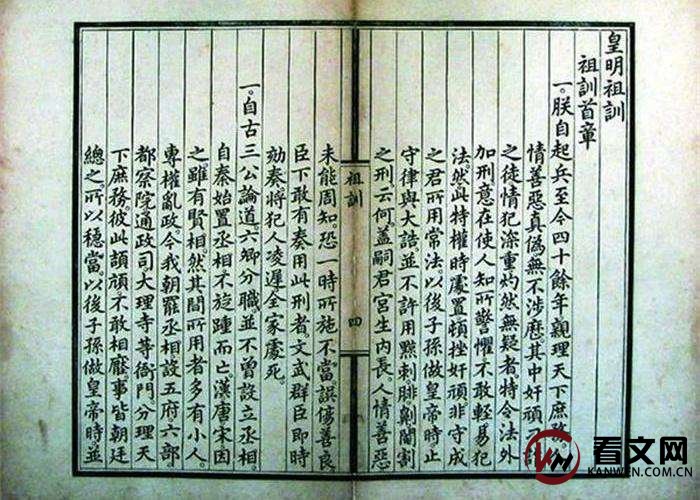 皇明祖訓
祖訓首章
一。朕自起兵至今四十餘年。親理天下庶務。
情善惡真偽。無不涉歷。其中奸頑
之徒。情犯深重。灼然無疑者。特令法外
加刑。意在使人知所警懼。不敢輕易犯
法。然此特權時處置。頓挫奸頑。非守成
之君所用常法。以後子孫做皇帝時。止
守律與大誥。並不許用黥刺腓劓閹割
之刑。云何。蓋嗣君宮生內長。人情善惡
祖訓
四
未能周知。恐一時所施不當。誤傷善良。
臣下敢有奏用此刑者。文武群臣即時
劾奏。將犯人凌遲。全家處死。
一。自古三公論道。六卿分職。並不曾設立丞相。
自秦始置丞相。不旋踵而亡。漢唐宋因
之。雖有賢相。然其間所用者多有小人。
專權亂政。今我朝罷丞相。設五府六部。
都察院通政司大理寺等衙門。分理天
下庶務。彼此頡頏。不敢相壓。事皆朝廷
總之。所以穩當。以後子孫做皇帝時。並
看文网
KANWEN.COM.CN